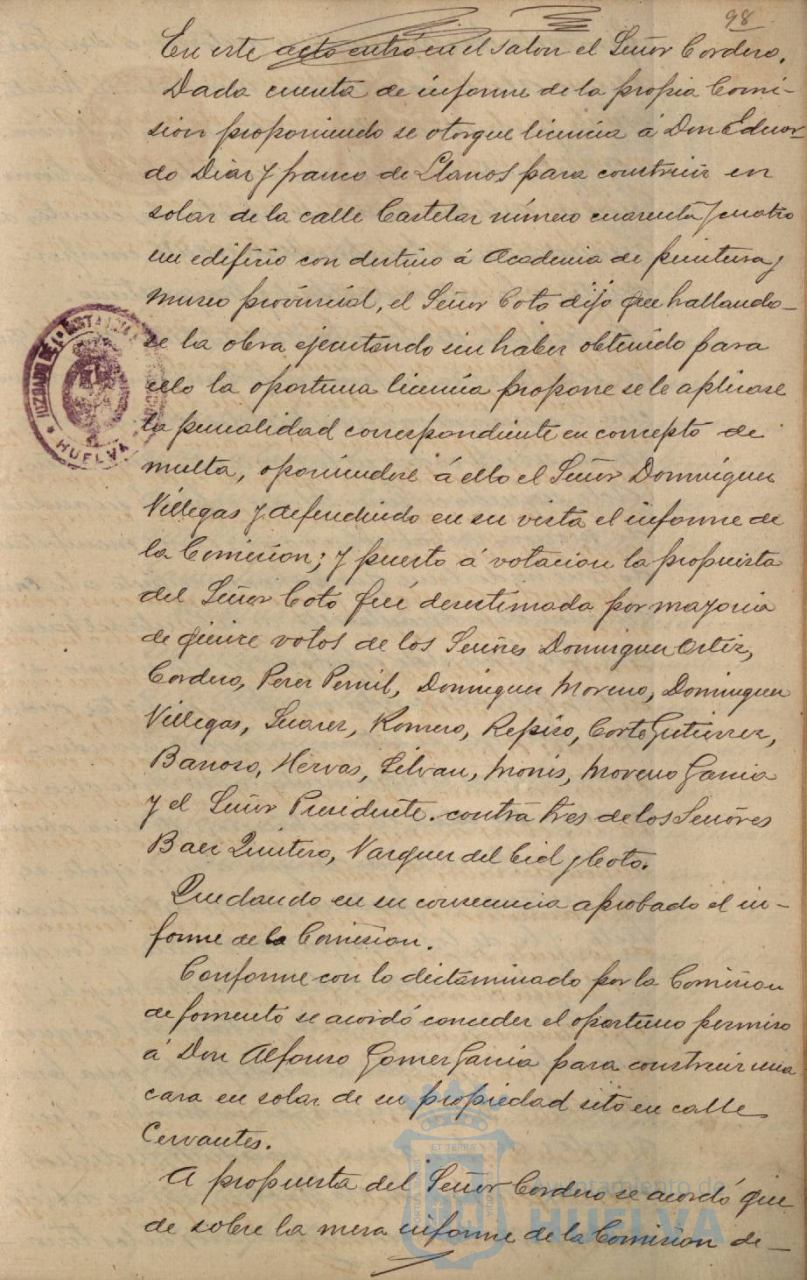 98
En este acto entró en el salon el Señor Cordero.
Dada cuenta de informe de la propia Comi-
sion proponiendo se otorgue licencia á Don Eduar-
do Diaz y franco de Llanos para construir en
solar de la calle Castelar número cuarenta y cuatro
un edificio con destino á Academia de pintura y
Museo provincial, el Señor Coto dijo que hallando-
se la obra ejecutando sin haber obtenido para
ello la oportuna licencia propone se le aplicase
la penalidad correspondiente en concepto de
multa, oponiendose á ello el Señor Dominguez
Villegas y defendiendo en su vista el informe de
la Comision; y puesto á votacion la propuesta
del Señor Coto fué desestimada por mayoria
de quince votos de los Señores Dominguez Ortiz,
Cordero, Perez Pernil, Dominguez Moreno, Dominguez
Villegas, Suarez, Romero, Repiso, Corte Gutierrez,
Barroso, Hervas, Silvan, Monis, Moreno Garcia
y el Señor Presidente. contra tres de los Señores
Baez Quintero, Vazquez del Cid y Coto.
Quedando en su consecuencia aprobado el in-
forme de la Comision.
Conforme con lo dictaminado por la Comision
de fomento se acordó conceder el oportuno permiso
á Don Alfonso Gomez Garcia para construir una
casa en solar de su propiedad sito en calle
Cervantes.
A propuesta del Señor Cordero se acordó que
de sobre la mesa informe de la Comision de
JUZGADO DE 1ª INSTANCIA
HUELVA
Ayuntamiento de
HUELVA